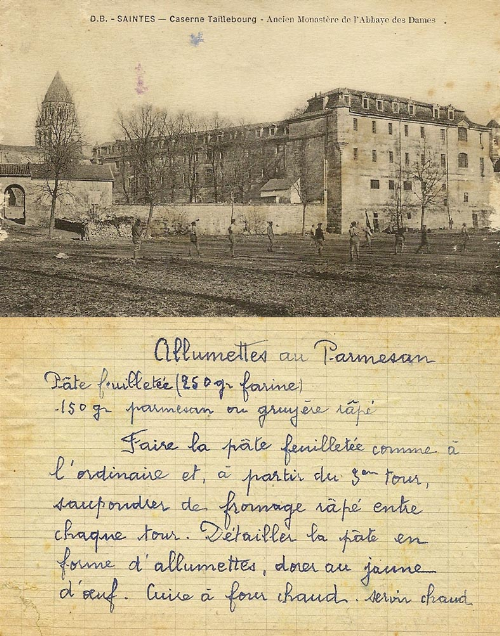 D.B. - SAINTES — Caserne Taillebourg - Ancien Monastère de l'Abbaye des Dames
Allumettes au Parmesan
Pâte feuilletée (250 gr farine)
150 gr parmesan ou gruyère râpé
Faire la pâte feuilletée comme à
l'ordinaire et, à partir du 3em tour,
saupoudrer de fromage râpé entre
chaque tour. Détailler la pâte en
forme d'allumettes, dorer au jaune
d'œuf. Cuire à four chaud. servir chaud